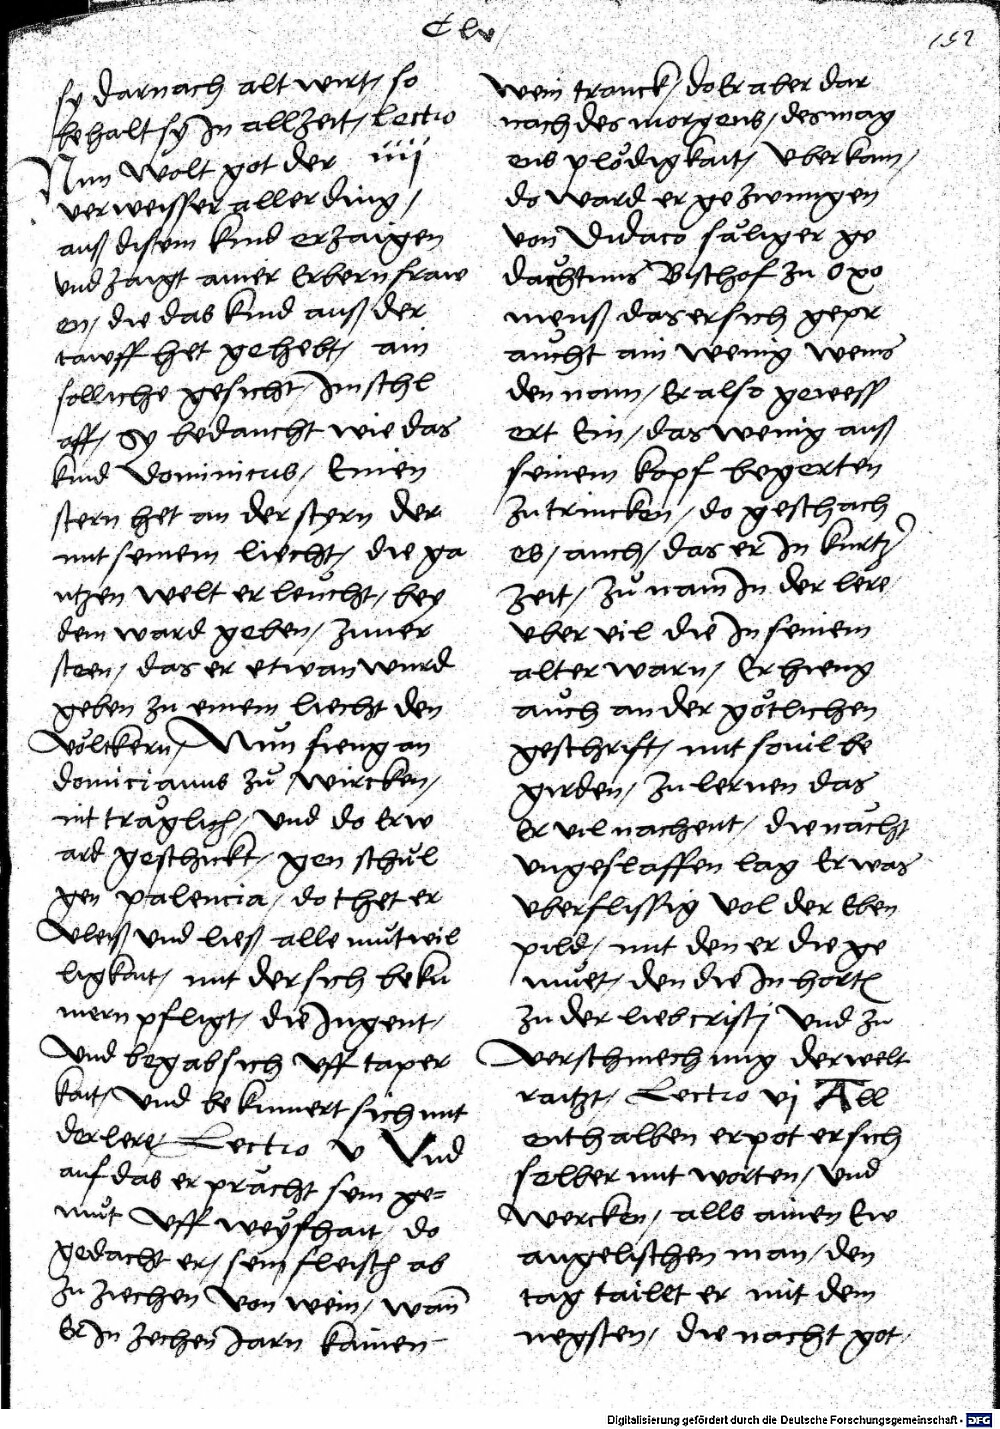 C lv
152
sy darnach alt wirt / so
behalt sy In allzeit / Lectio
Nun wolt got der iiij
verweisser aller ding /
auß disem kind erzaigen
und zaigt ainer Erbern fraw
en / die das kind auß der
tawff het gehebt / ain
solliche gesicht / Im schl
aff / Sy bedaucht wie das
kind dominicus / Einen
stern het an der styrn der
mit seinem liecht / die ga
ntzen welt erleücht / bey
dem ward geben / zuuer
steen / das er etwan wurd
geben zu einem liecht den
völckern / Nůn fieng an
domicianus zů wircken /
nit träglich / und do Erw
ard geschickt / gen schůl
gen palencia / do thet er
vleiß und ließ alle můtwil
ligkait / mit der sich bekü
mern pfligt / die Jugent /
Und begab sich uff taper
kait / Und bekumert sich mit
der lere / Lectio v Und
auf das er prächt sein ge=
müt uff weyßhait / do
gedacht er / sein fleisch ab
zu ziechen von wein / wañ
Er In zechen Jarn kainen
wein tranck / do Er aber dar
nach des morgens / des mag
ens plödigkait / uberkam /
do ward er gezwungen
von Didaco säliger ge
dächtnus Bischof zu Oxo
menß das er sich gepr
aücht ain wenig weins
den nam / Er also gewess
ert Ein / das wenig auß
seinem kopf begerten
zu trincken / do geschach
es / auch / das er In kurtz
zeit / zů nam In der lere /
uber vil die In seinem
alter warn / Er hieng
aůch an der götlichen
geschrift / mit souil be
girden / zu lernen das
Er vil nachent / die nächt
ungeslaffen lag Er was
uberflissig vol der Eben
pild / mit den er die ge
müet / den die In hortẽ
zu der lieb cristi Und zu
verschmechung der welt
raitzt / Lectio vj All
enthalben erpot er sich
selber mit worten / Und
wercken / alls ainen Ew
angelischen man / den
tag taillt er mit dem
negsten / die nacht got /
Digitalisierung gefördert durch die Deutsche Forschungsgemeinschaft - DFG